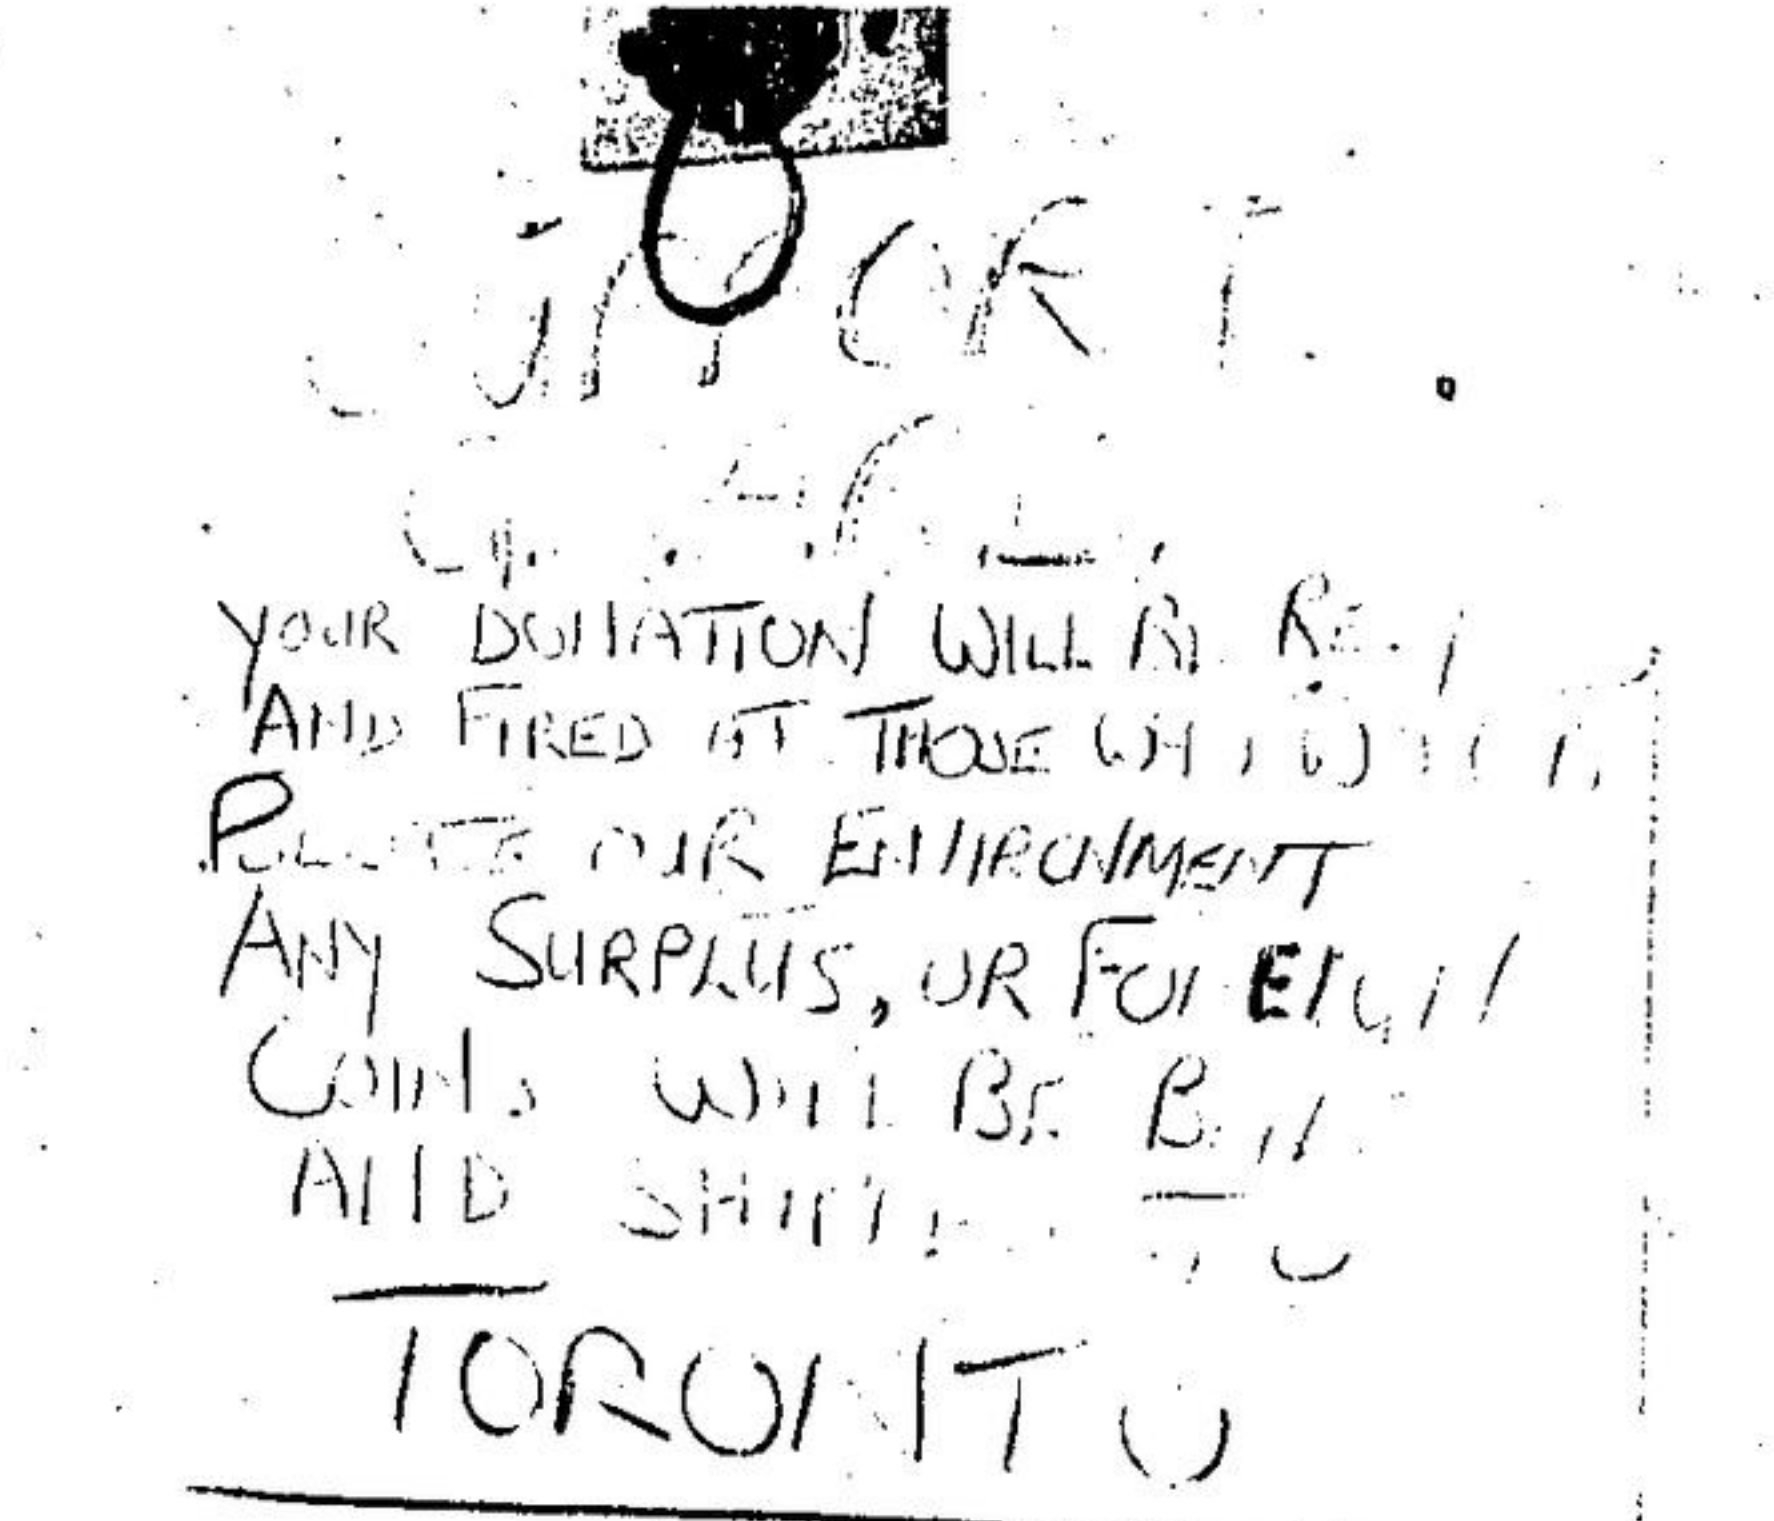 SUPPORT
YOUR DONATION WILL BE
AND FIRED AT THOSE WHO
POLLUTE OUR ENVIRONMENT
ANY SURPLUS, OR FOREIGN
COINS WILL BE
AND SHIPPED TO
TORONTO